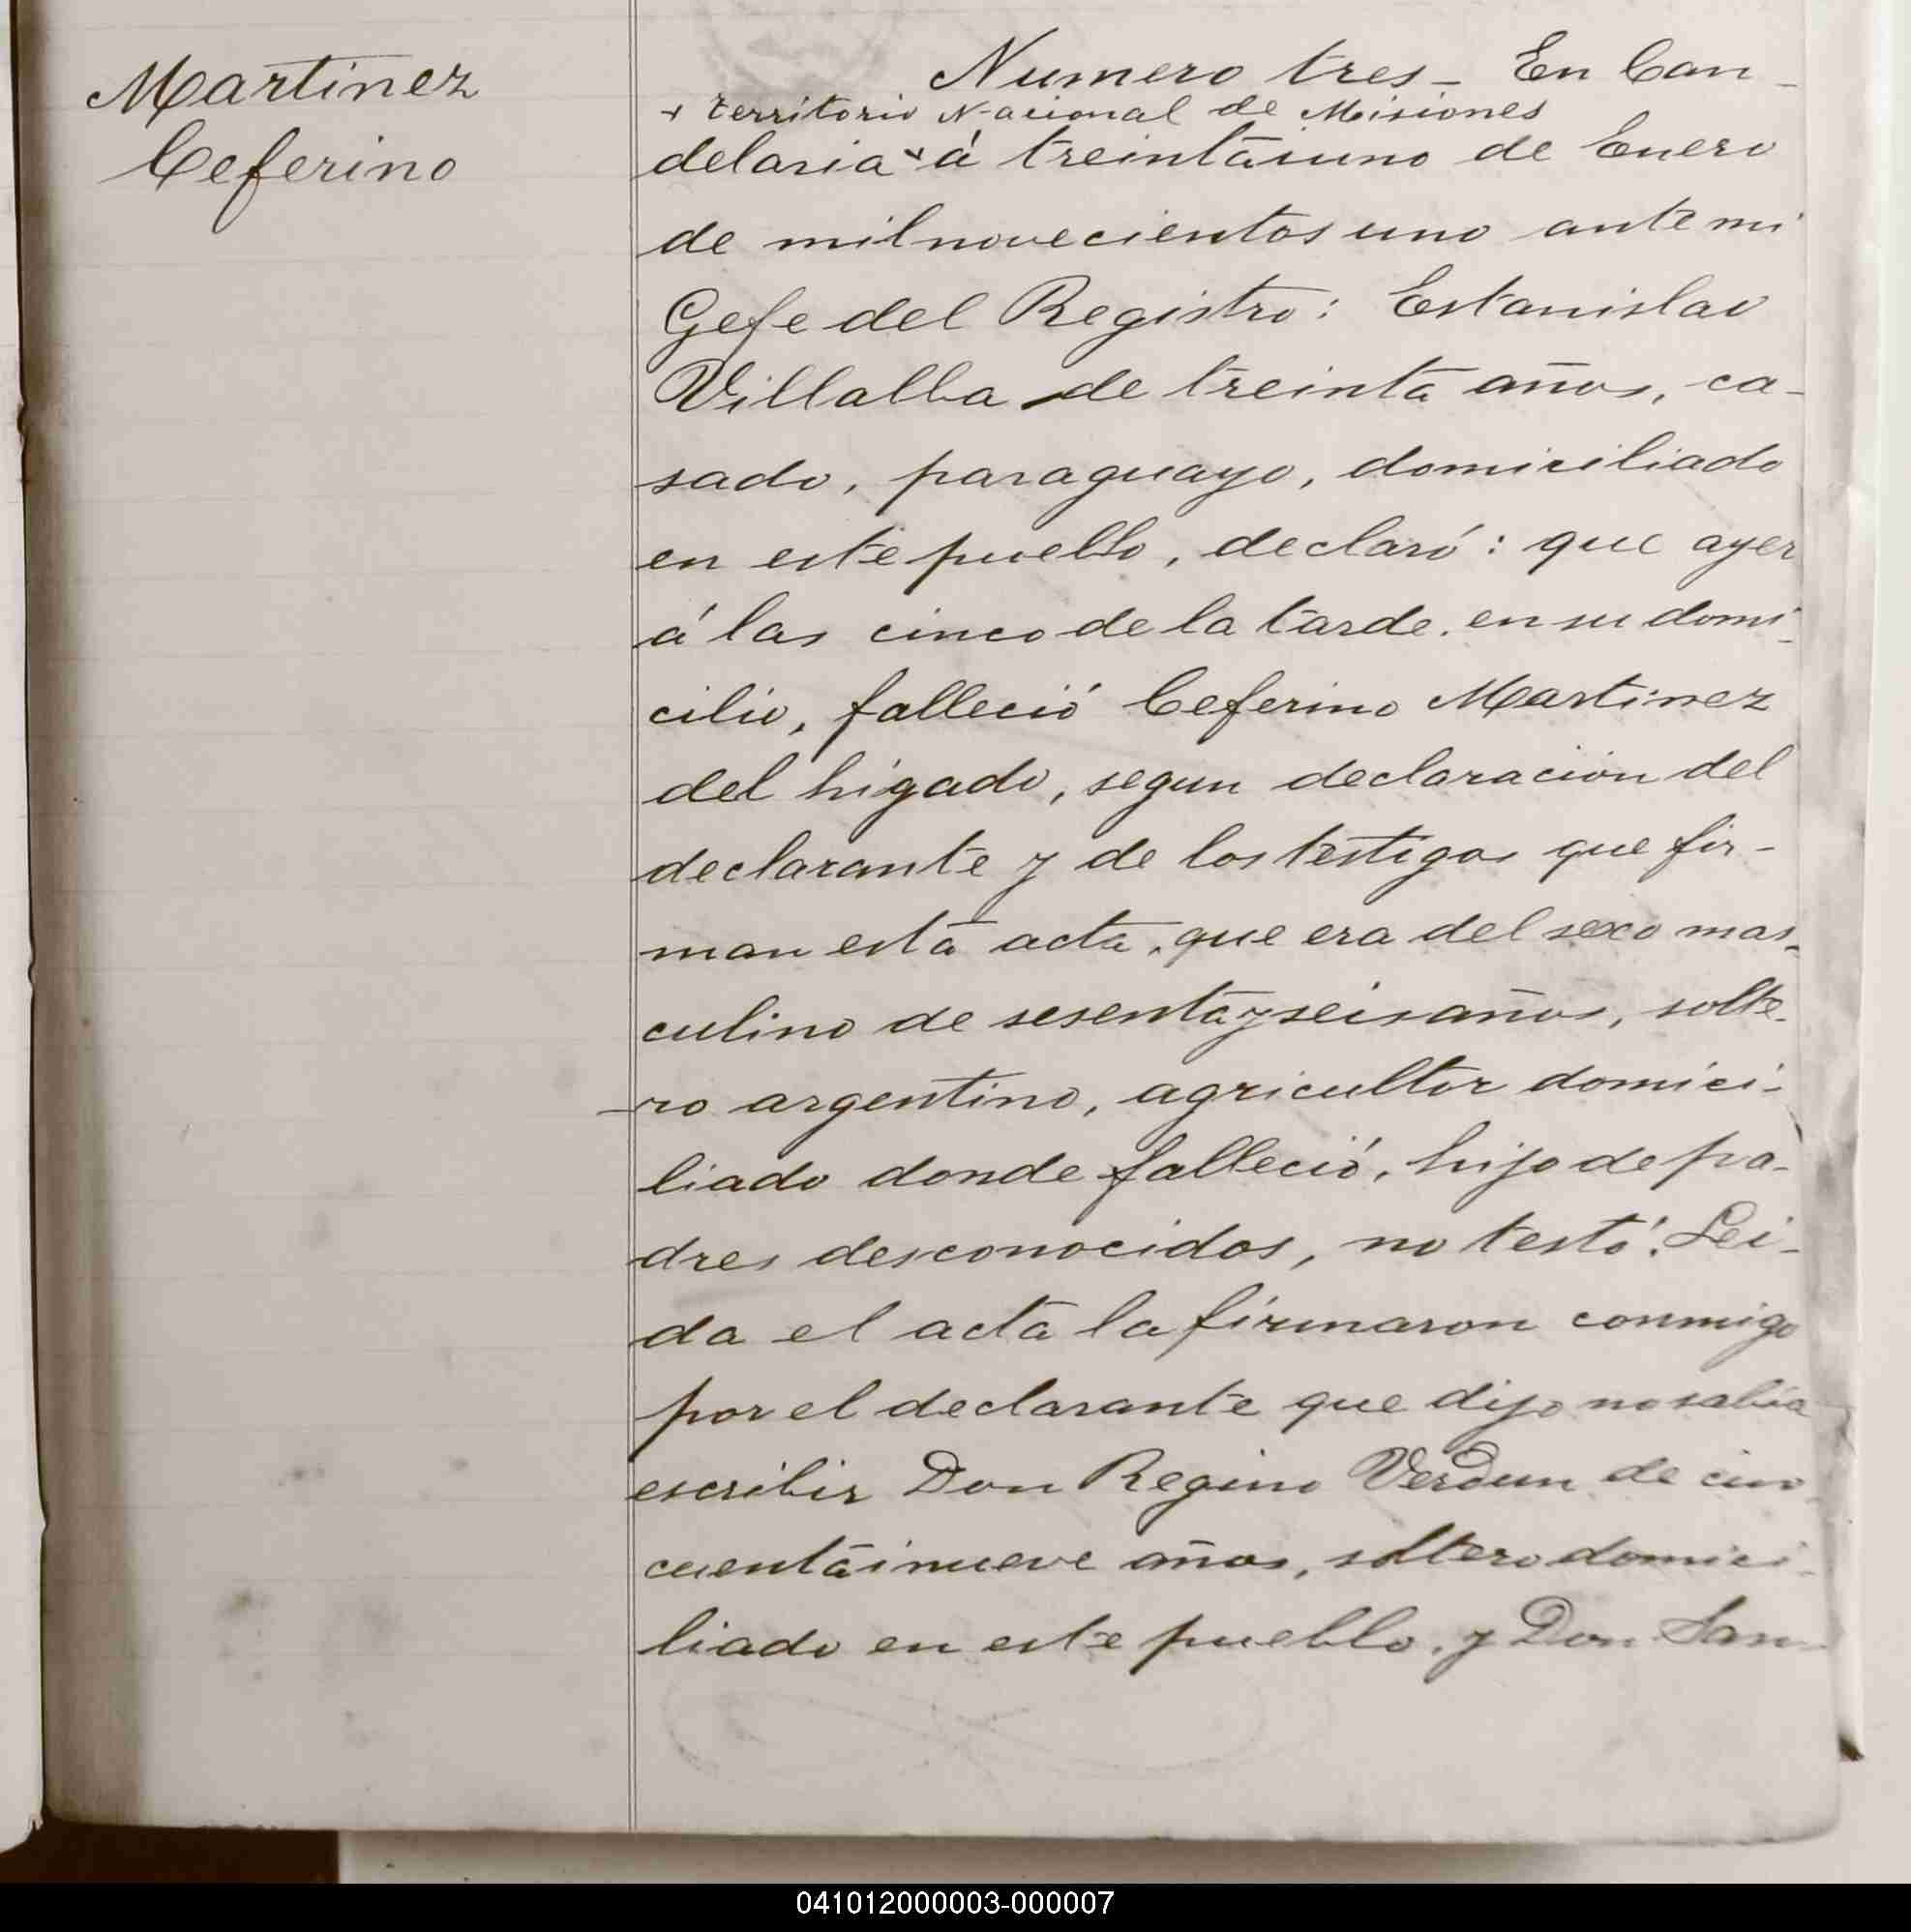 Martinez
Ceferino
Numero tres - En Can-
+ territorio Nacional de Misiones
delaria + á treintaiuno de Enero
de mil novecientos uno ante mi
Gefe del Registro: Estanislao
Villalba de treinta años, ca-
sado, paraguayo, domiciliado
en este pueblo, declaró: que ayer
á las cinco de la tarde, en su domi-
cilio, falleció Ceferino Martinez
del higado, segun declaración del
declarante y de los testigos que fir-
man esta acta, que era del sexo mas-
culino de sesenta y seis años, solte-
-ro argentino, agricultor domici-
liado donde falleció, hijo de pa-
dres desconocidos, no testó. Lei-
da el acta la firmaron conmigo
por el declarante que dijo no sabia
escribir Don Regino Verdun de cin-
cuentainueve años, soltero domici-
liado en este pueblo, y Don San-
041012000003-000007